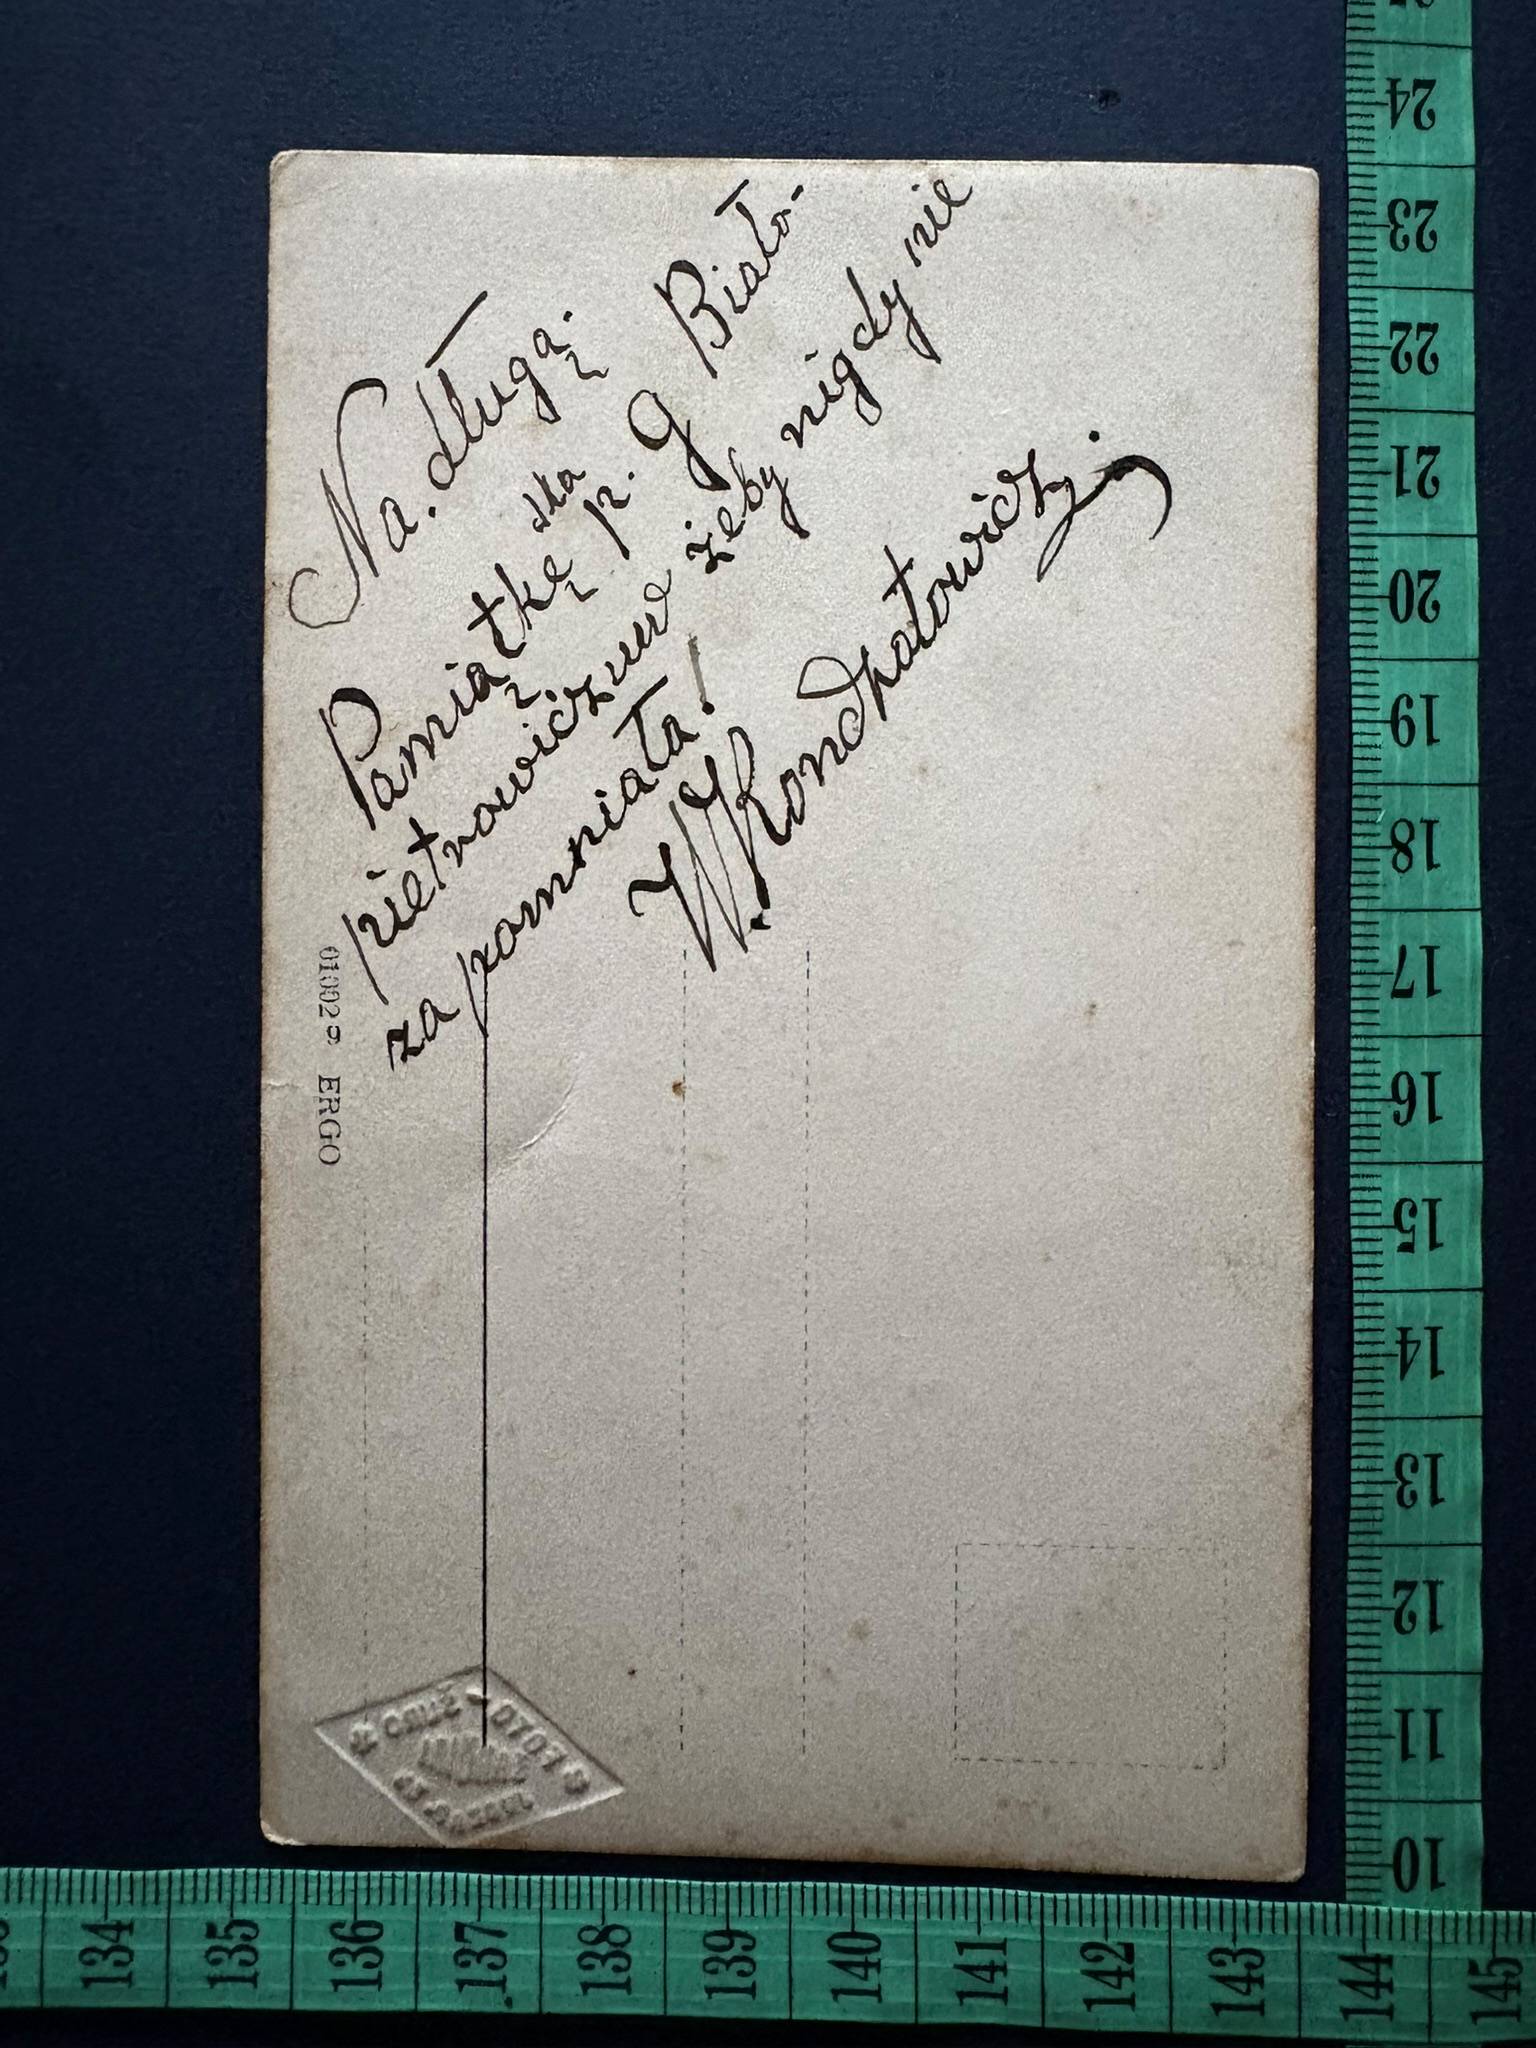 Na. długą.
Pamiątkę dla p. G Biało-
pietrowiczuwe żeby nigdy nie
zapomniała!
W. Kondratowicz.
01002 ERGO
FOTO
24
23
22
21
20
19
18
17
16
15
14
13
12
11
10
134 135 136 137 138 139 140 141 142 143 144 145